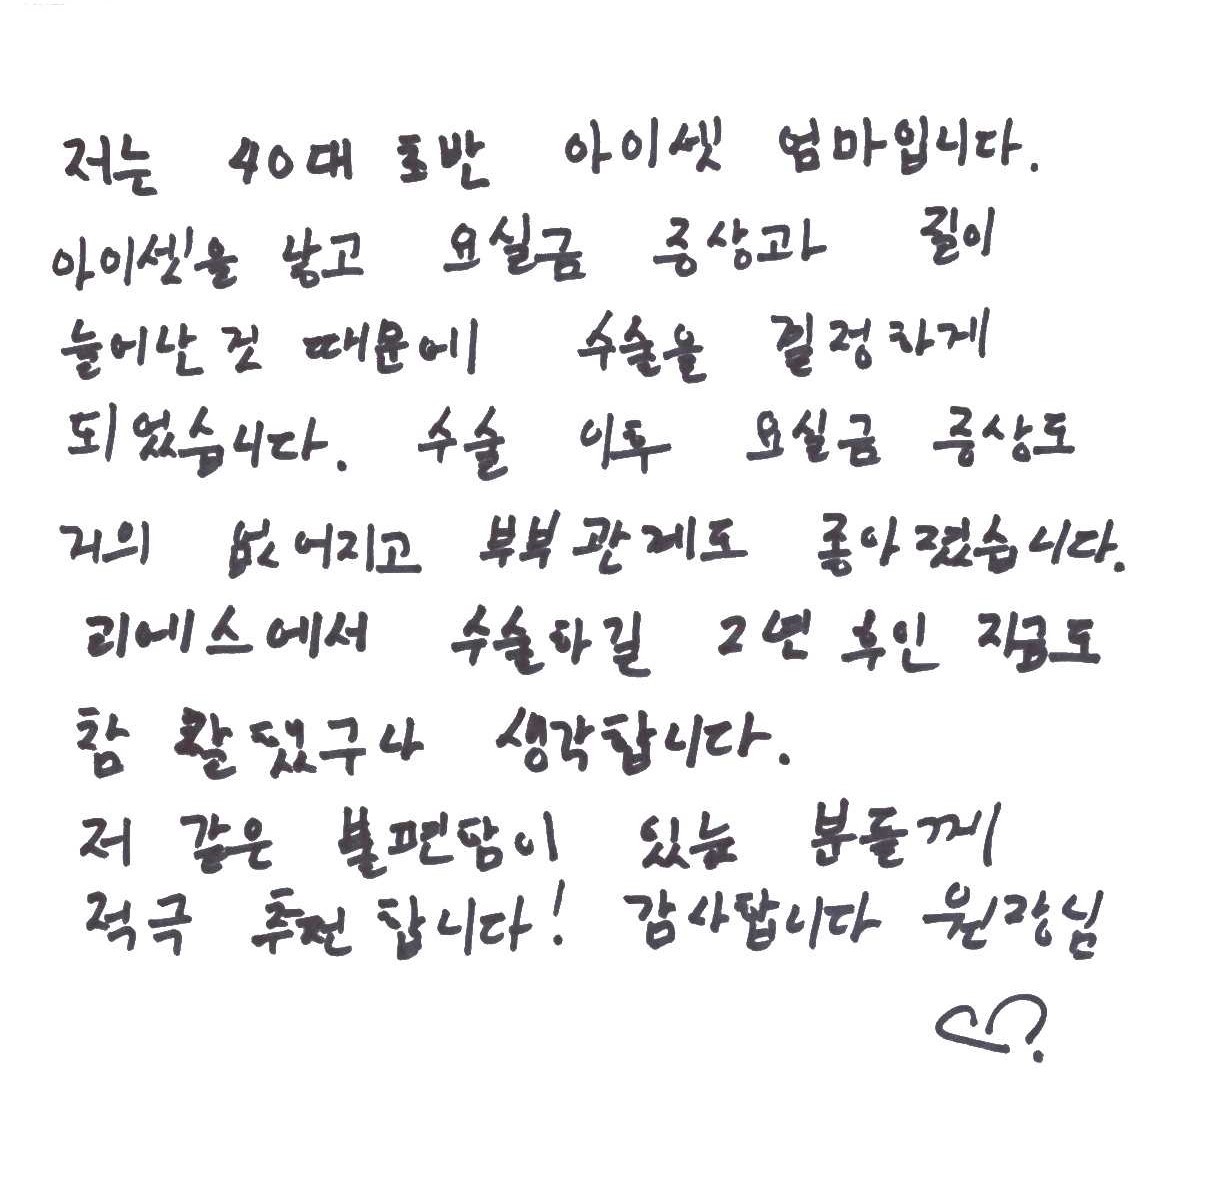 저는 40대 초반 아이셋 엄마입니다.
아이셋을 낳고 요실금 증상과 질이
늘어난 것 때문에 수술을 결정하게
되었습니다. 수술 이후 요실금 증상도
거의 없어지고 부부관계도 좋아졌습니다.
리에스에서 수술하길 2년 후인 지금도
참 잘했구나 생각합니다.
저 같은 불편함이 있는 분들께
적극 추천합니다! 감사합니다 원장님